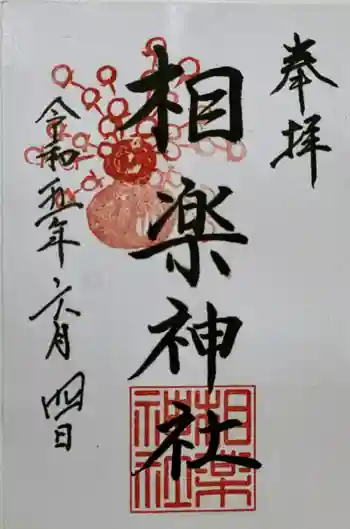 奉拝
相楽神社
相楽
神社
令和五年六月四日